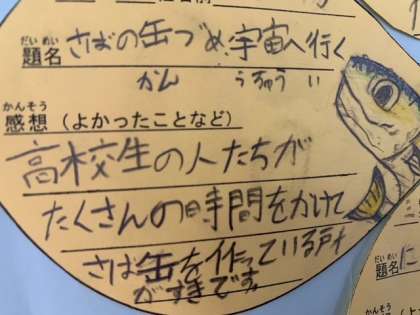 だいめい
題名 さばの缶づめ、宇宙へ行く
かん うちゅう い
かんそう
感想(よかったことなど)
高校生の人たちが
たくさんの時間をかけて
さば缶を作っている所
がすきです。
だいめい
題名 に